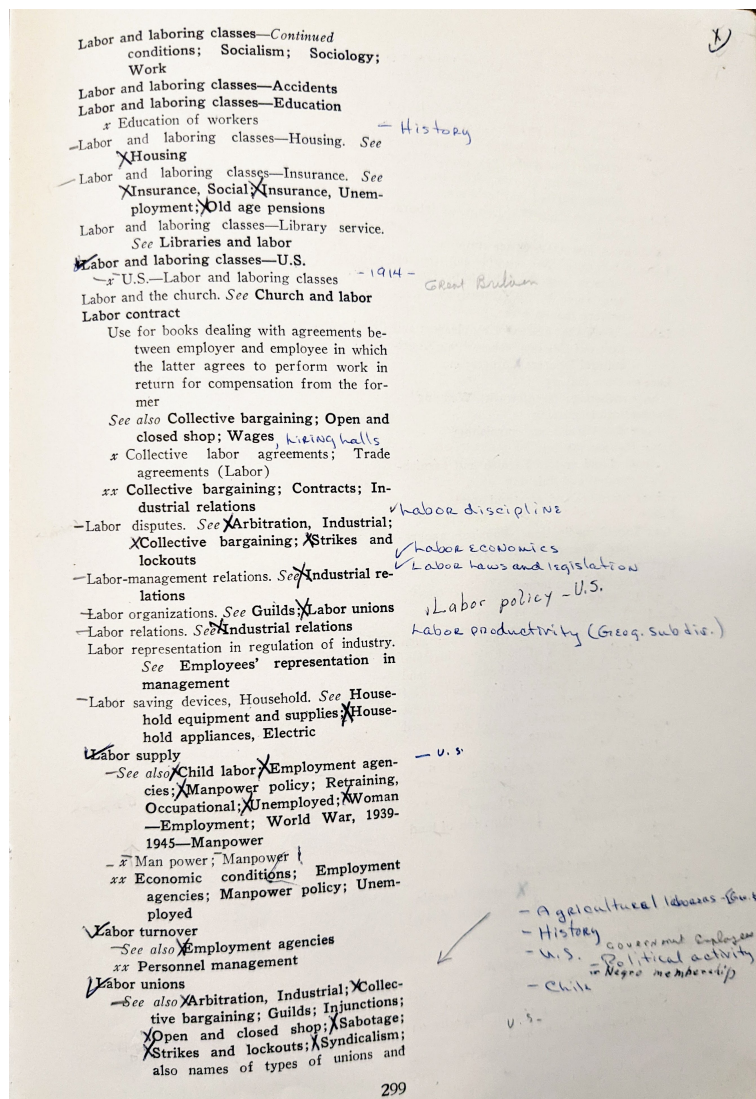 Labor and laboring classes—Continued
conditions; Socialism; Sociology;
Work
Labor and laboring classes—Accidents
Labor and laboring classes—Education
x Education of workers
— History
Labor and laboring classes—Housing. See
Housing
Labor and laboring classes—Insurance. See
Insurance, Social; Insurance, Unem-
ployment; Old age pensions
Labor and laboring classes—Library service.
See Libraries and labor
Labor and laboring classes—U.S.
x U.S.—Labor and laboring classes - 1914 -
Great Britain
Labor and the church. See Church and labor
Labor contract
Use for books dealing with agreements be-
tween employer and employee in which
the latter agrees to perform work in
return for compensation from the for-
mer
See also Collective bargaining; Open and
closed shop; Wages, hiring halls
x Collective labor agreements; Trade
agreements (Labor)
xx Collective bargaining; Contracts; In-
dustrial relations
Labor discipline
Labor disputes. See Arbitration, Industrial;
Collective bargaining; Strikes and
lockouts
Labor economics
Labor laws and legislation
Labor-management relations. See Industrial re-
lations
Labor policy - U.S.
Labor organizations. See Guilds; Labor unions
Labor relations. See Industrial relations
Labor productivity (Geog. subdiv.)
Labor representation in regulation of industry.
See Employees' representation in
management
Labor saving devices, Household. See House-
hold equipment and supplies; House-
hold appliances, Electric
Labor supply — U.S.
See also Child labor; Employment agen-
cies; Manpower policy; Retraining,
Occupational; Unemployed; Woman
—Employment; World War, 1939-
1945—Manpower
x Man power; Manpower
xx Economic conditions; Employment
agencies; Manpower policy; Unem-
ployed
Labor turnover
See also Employment agencies
xx Personnel management
Labor unions
See also Arbitration, Industrial; Collec-
tive bargaining; Guilds; Injunctions;
Open and closed shop; Sabotage;
Strikes and lockouts; Syndicalism;
also names of types of unions and
- Agricultural laborers
- History
Government employees
- U.S. - Political activity
- Negro membership
- Chile
U.S.
299